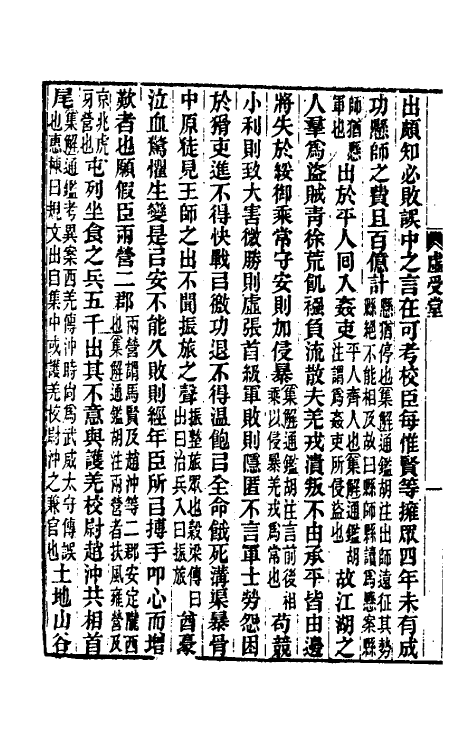 虛受堂
出頗知必敗誤中之言在可考校臣每惟賢等擁眾四年未有成
功懸師之費且百億計懸猶停也集解通鑑胡注出師遠征其勢懸絕不能相及故曰縣師縣讀爲懸案縣
師猶懸軍也出於平人回入姦吏平人齊人也集解通鑑胡注謂爲姦吏所侵盜也故江湖之
人羣爲盜賊青徐荒飢襁負流散夫羌戎潰叛不由承平皆由邊
將失於綏御乘常守安則加侵暴集解通鑑胡注言前後相乘以侵暴羌戎爲常也苟競
小利則致大害微勝則虛張首級軍敗則隱匿不言軍士勞怨困
於猾吏進不得快戰㠯徼功退不得溫飽㠯全命餓死溝渠暴骨
中原徒見王師之出不聞振旅之聲振整旅眾也穀梁傳曰出曰治兵入曰振旅酋豪
泣血驚懼生變是㠯安不能久敗則經年臣所㠯搏手叩心而增
歎者也願假臣兩營二郡兩營謂馬賢及趙沖等二郡安定隴西也集解通鑑胡注兩營者扶風雍營及
京兆虎牙營也屯列坐食之兵五千出其不意與護羌校尉趙沖共相首
尾集解通鑑考異案西羌傳沖時尙爲武威太守傳誤也惠棟曰規文出自集中或護羌校尉沖之兼官也土地山谷